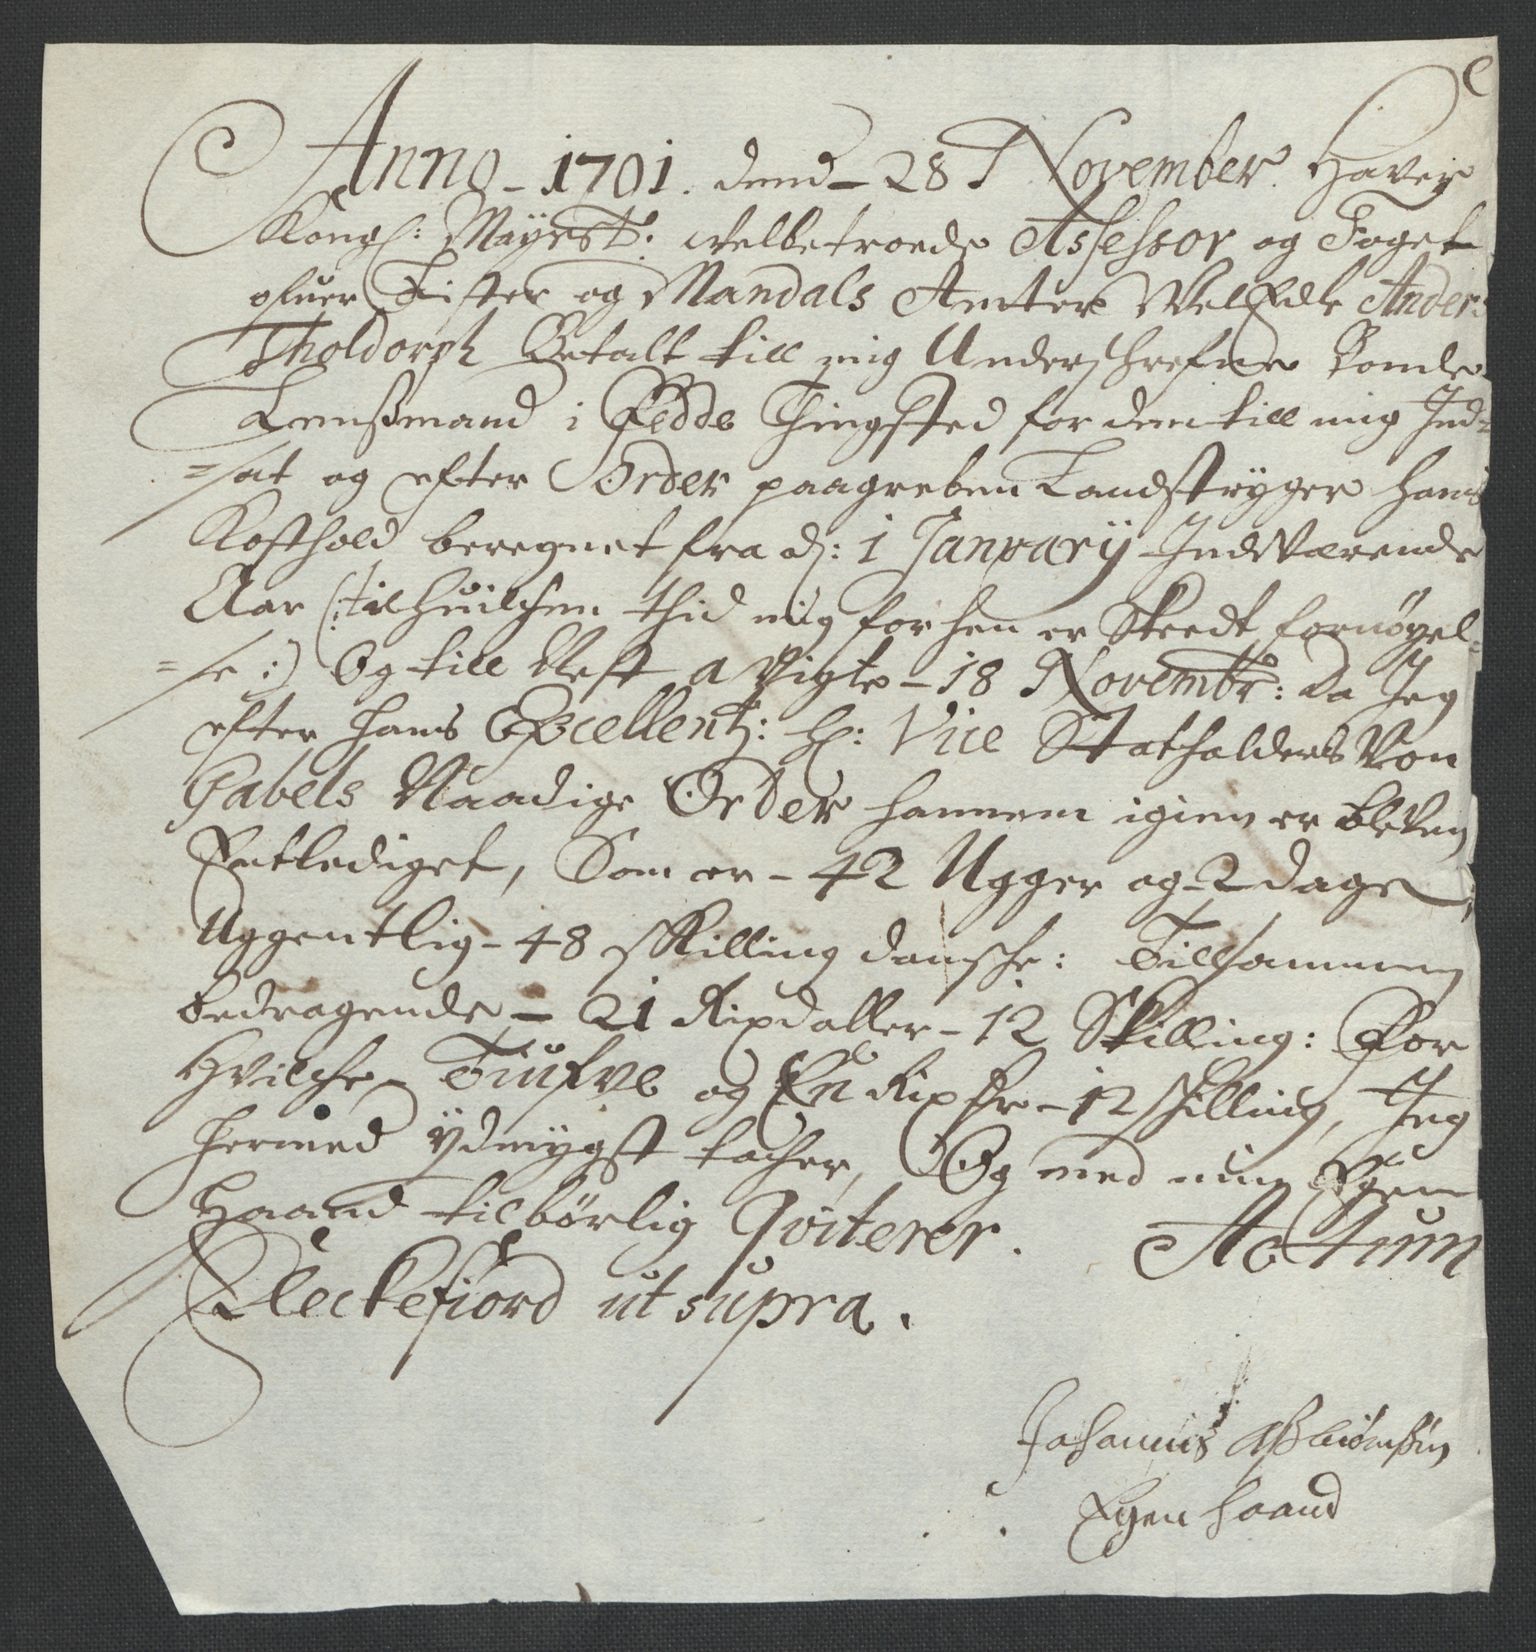 Anno - 1701. dend - 28 November. Haver
Kongl: Mayest: velbetroede Assessor og Foget
ofuer Lister og Mandals Amter Wel Edle Anders
Tholdorph Betalt till mig Underschrefne Bonde-
Lenßmand i Fedde Thingsted for den till mig Ind=
=sat og efter Order paagreben Landstryger hans
Kosthold beregnet fra d: 1 January IndWærende
Aar (: til huilchen thid mig forhen er Skeedt fornøyel=
=se :) Og till Nest a Vigte - 18 Novembr: da Jeg
efter hans Excellentz: H: Vice Statholders Von
Gabels Naadige Order hannem igien er bleven
Entlediget, Som er - 42 Ugger og - 2 dage,
Uggentlig - 48 skilling dansche: Tilsammen
bedragende - 21 Rixdaller - 12 Skilling: For
Hvilche - Tiufve og En Rixdr - 12 schilling, Jeg
hermed ydmygst tacher, Og med min Egen
Haand tilbørlig Qviterer. Actum
Fleckefiord ut supra.
Johannes Aßbiørnßøn
Egen haand